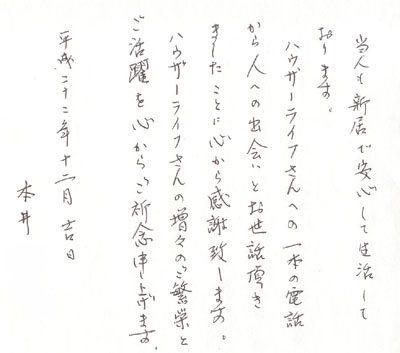 当人も新居で安心して生活して
おります。
ハウザーライフさんへの一本の電話
から人への出会いとお世話頂き
ましたことに心から感謝致します。
ハウザーライフさんの増々のご繁栄と
ご活躍を心からご祈念申し上げます。
平成二十二年十二月吉日
本井